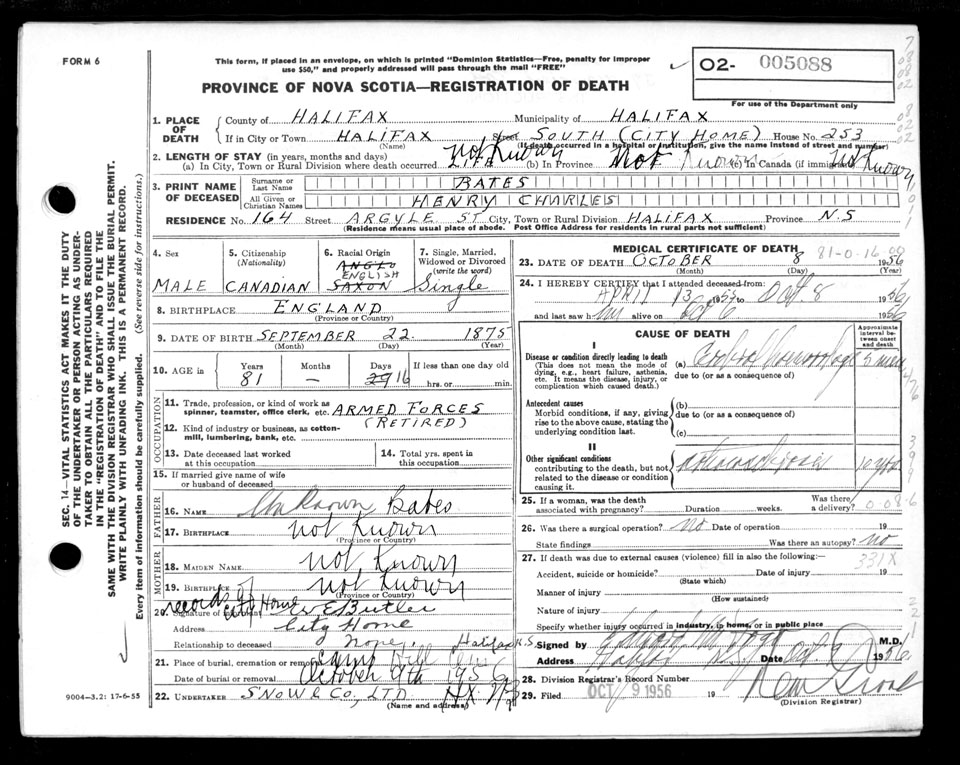 FORM 6
This form, if placed in an envelope, on which is printed "Dominion Statistics—Free, penalty for improper
use $50," and properly addressed will pass through the mail "FREE"
O2- 005088
For use of the Department only
PROVINCE OF NOVA SCOTIA—REGISTRATION OF DEATH
1. PLACE OF DEATH
County of HALIFAX Municipality of HALIFAX
If in City or Town HALIFAX Street SOUTH (CITY HOME) House No. 253
(Name) (If death occurred in a hospital or institution, give the name instead of street and number)
2. LENGTH OF STAY (in years, months and days)
(a) In City, Town or Rural Division where death occurred Not Known (b) In Province Not Known (c) In Canada (if immigrant) Not Known
3. PRINT NAME OF DECEASED
Surname or Last Name BATES
All Given or Christian Names HENRY CHARLES
RESIDENCE No. 164 Street ARGYLE ST City, Town or Rural Division HALIFAX Province N.S
(Residence means usual place of abode. Post Office Address for residents in rural parts not sufficient)
4. Sex
MALE
5. Citizenship
(Nationality)
CANADIAN
6. Racial Origin
ANGLO
ENGLISH
SAXON
7. Single, Married,
Widowed or Divorced
(write the word)
Single
8. BIRTHPLACE ENGLAND
(Province or Country)
9. DATE OF BIRTH SEPTEMBER 22 1875
(Month) (Day) (Year)
10. AGE in
Years Months Days If less than one day old
81 – 16 hrs. or min.
OCCUPATION
11. Trade, profession, or kind of work as
spinner, teamster, office clerk, etc. ARMED FORCES
(RETIRED)
12. Kind of industry or business, as cotton-
mill, lumbering, bank, etc.
13. Date deceased last worked
at this occupation
14. Total yrs. spent in
this occupation
15. If married give name of wife
or husband of deceased
FATHER
16. NAME Unknown Bates
17. BIRTHPLACE not Known
(Province or Country)
MOTHER
18. MAIDEN NAME not Known
19. BIRTHPLACE not Known
(Province or Country)
records of
City Home
20. Signature of informant W E Butler
Address City Home
Relationship to deceased None, Halifax N.S.
21. Place of burial, cremation or removal Camp Hill
Date of burial or removal October 9th 1956
22. UNDERTAKER SNOW & CO. LTD. HX. NS
(Name and address)
MEDICAL CERTIFICATE OF DEATH
81-0-16
23. DATE OF DEATH OCTOBER 8 1956
(Month) (Day) (Year)
24. I HEREBY CERTIFY that I attended deceased from:
APRIL 13 to Oct. 8 1956
and last saw him alive on Oct 6 1956
CAUSE OF DEATH
Approximate interval between onset and death
I
Disease or condition directly leading to death
(This does not mean the mode of
dying, e.g., heart failure, asthenia,
etc. It means the disease, injury, or
complication which caused death.)
(a)
due to (or as a consequence of)
Antecedent causes
Morbid conditions, if any, giving
rise to the above cause, stating the
underlying condition last.
(b)
due to (or as a consequence of)
(c)
II
Other significant conditions
contributing to the death, but not
related to the disease or condition
causing it.
Arteriosclerosis 10 yrs
25. If a woman, was the death
associated with pregnancy? Duration weeks. Was there
a delivery?
26. Was there a surgical operation? No Date of operation 19
State findings Was there an autopsy? No
27. If death was due to external causes (violence) fill in also the following:—
331X
Accident, suicide or homicide? Date of injury 19
(State which)
Manner of injury
(How sustained)
Nature of injury
Specify whether injury occurred in industry, in home, or in public place
Signed by M.D.
Address Halifax Date Oct 9 1956
28. Division Registrar's Record Number
29. Filed OCT 9 1956 19
(Division Registrar)
SEC. 14—VITAL STATISTICS ACT MAKES IT THE DUTY
OF THE UNDERTAKER OR PERSON ACTING AS UNDER-
TAKER TO OBTAIN ALL THE PARTICULARS REQUIRED
IN THE "REGISTRATION OF DEATH" AND TO FILE THE
SAME WITH THE DIVISION REGISTRAR WHO SHALL ISSUE THE BURIAL PERMIT.
WRITE PLAINLY WITH UNFADING INK. THIS IS A PERMANENT RECORD.
Every item of information should be carefully supplied. (See reverse side for instructions.)
9004—3.2: 17-6-55